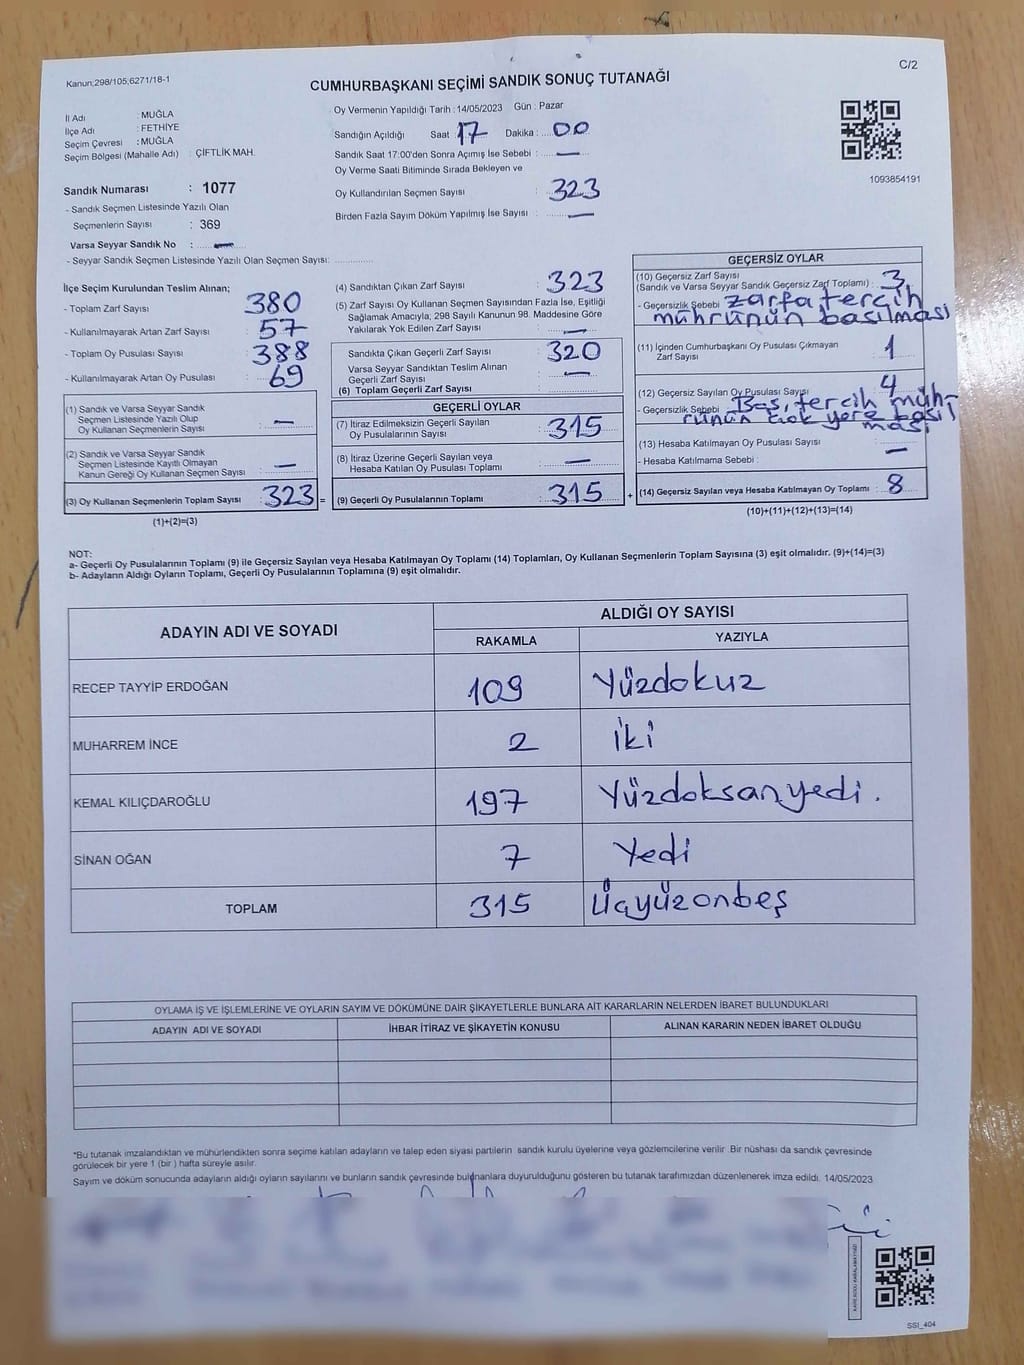 Kanun;298/105;6271/18-1
C/2
CUMHURBAŞKANI SEÇİMİ SANDIK SONUÇ TUTANAĞI
İl Adı : MUĞLA
İlçe Adı : FETHİYE
Seçim Çevresi : MUĞLA
Seçim Bölgesi (Mahalle Adı) : ÇİFTLİK MAH.
Sandık Numarası : 1077
- Sandık Seçmen Listesinde Yazılı Olan
Seçmenlerin Sayısı : 369
Varsa Seyyar Sandık No : —
- Seyyar Sandık Seçmen Listesinde Yazılı Olan Seçmen Sayısı: ..............
Oy Vermenin Yapıldığı Tarih : 14/05/2023 Gün : Pazar
Sandığın Açıldığı Saat 17 Dakika : 00
Sandık Saat 17:00'den Sonra Açımış İse Sebebi : —
Oy Verme Saati Bitiminde Sırada Bekleyen ve
Oy Kullandırılan Seçmen Sayısı : 323
Birden Fazla Sayım Döküm Yapılmış İse Sayısı : —
1093854191
İlçe Seçim Kurulundan Teslim Alınan;
- Toplam Zarf Sayısı : 380
- Kullanılmayarak Artan Zarf Sayısı : 57
- Toplam Oy Pusulası Sayısı : 388
- Kullanılmayarak Artan Oy Pusulası : 69
(1) Sandık ve Varsa Seyyar Sandık
Seçmen Listesinde Yazılı Olup
Oy Kullanan Seçmenlerin Sayısı : —
(2) Sandık ve Varsa Seyyar Sandık
Seçmen Listesinde Kayıtlı Olmayan
Kanun Gereği Oy Kullanan Seçmen Sayısı : —
(3) Oy Kullanan Seçmenlerin Toplam Sayısı : 323 =
(1)+(2)=(3)
(4) Sandıktan Çıkan Zarf Sayısı : 323
(5) Zarf Sayısı Oy Kullanan Seçmen Sayısından Fazla İse, Eşitliği
Sağlamak Amacıyla; 298 Sayılı Kanunun 98. Maddesine Göre
Yakılarak Yok Edilen Zarf Sayısı : —
Sandıkta Çıkan Geçerli Zarf Sayısı : 320
Varsa Seyyar Sandıktan Teslim Alınan
Geçerli Zarf Sayısı : —
(6) Toplam Geçerli Zarf Sayısı :
GEÇERLİ OYLAR
(7) İtiraz Edilmeksizin Geçerli Sayılan
Oy Pusulalarının Sayısı : 315
(8) İtiraz Üzerine Geçerli Sayılan veya
Hesaba Katılan Oy Pusulası Toplamı : —
(9) Geçerli Oy Pusulalarının Toplamı : 315 +
GEÇERSİZ OYLAR
(10) Geçersiz Zarf Sayısı
(Sandık ve Varsa Seyyar Sandık Geçersiz Zarf Toplamı) : 3
- Geçersizlik Sebebi zarfa tercih
mührünün basılması
(11) İçinden Cumhurbaşkanı Oy Pusulası Çıkmayan
Zarf Sayısı : 1
(12) Geçersiz Sayılan Oy Pusulası Sayısı 4
- Geçersizlik Sebebi Boş, tercih müh-
rünün çok yere basıl
ması
(13) Hesaba Katılmayan Oy Pusulası Sayısı : —
- Hesaba Katılmama Sebebi :
(14) Geçersiz Sayılan veya Hesaba Katılmayan Oy Toplamı : 8
(10)+(11)+(12)+(13)=(14)
NOT:
a- Geçerli Oy Pusulalarının Toplamı (9) ile Geçersiz Sayılan veya Hesaba Katılmayan Oy Toplamı (14) Toplamları, Oy Kullanan Seçmenlerin Toplam Sayısına (3) eşit olmalıdır. (9)+(14)=(3)
b- Adayların Aldığı Oyların Toplamı, Geçerli Oy Pusulalarının Toplamına (9) eşit olmalıdır.
ADAYIN ADI VE SOYADI ALDIĞI OY SAYISI
RAKAMLA YAZIYLA
RECEP TAYYİP ERDOĞAN 109 Yüzdokuz
MUHARREM İNCE 2 İki
KEMAL KILIÇDAROĞLU 197 Yüzdoksanyedi.
SİNAN OĞAN 7 Yedi
TOPLAM 315 Üçyüzonbeş
OYLAMA İŞ VE İŞLEMLERİNE VE OYLARIN SAYIM VE DÖKÜMÜNE DAİR ŞİKAYETLERLE BUNLARA AİT KARARLARIN NELERDEN İBARET BULUNDUKLARI
ADAYIN ADI VE SOYADI İHBAR İTİRAZ VE ŞİKAYETİN KONUSU ALINAN KARARIN NEDEN İBARET OLDUĞU
*Bu tutanak imzalandıktan ve mühürlendikten sonra seçime katılan adayların ve talep eden siyasi partilerin sandık kurulu üyelerine veya gözlemcilerine verilir. Bir nüshası da sandık çevresinde
görülecek bir yere 1 (bir ) hafta süreyle asılır.
Sayım ve döküm sonucunda adayların aldığı oyların sayılarını ve bunların sandık çevresinde bulunanlara duyurulduğunu gösteren bu tutanak tarafımızdan düzenlenerek imza edildi. 14/05/2023
SSI_404